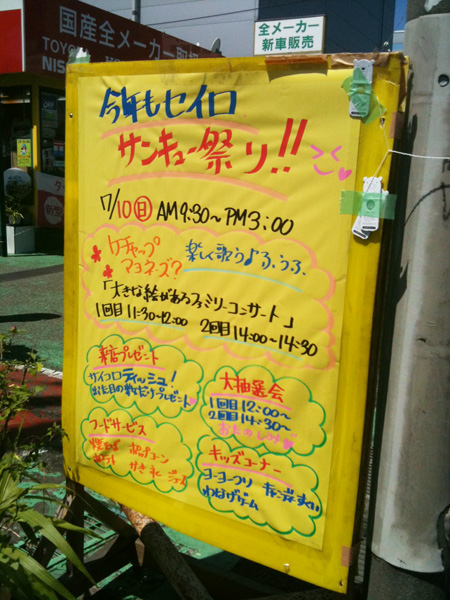 国産全メーカー取扱
TOYO
NIS
全メーカー
新車販売
今年もセイロ
サンキュー祭り!!
7/10(日) AM9:30~PM3:00
ケチャップ
マヨネーズ?
楽しく歌う♪ふぅふ
「大きな絵があるファミリーコンサート」
1回目 11:30~12:00 2回目 14:00~14:30
来店プレゼント
サイコロティッシュ!
出た目の数だけプレゼント
大抽選会
1回目 12:00~
2回目 14:30~
おたのしみ
フードサービス
焼そば ポップコーン
かき氷 ジュース
キッズコーナー
ヨーヨーつり
わなげゲーム